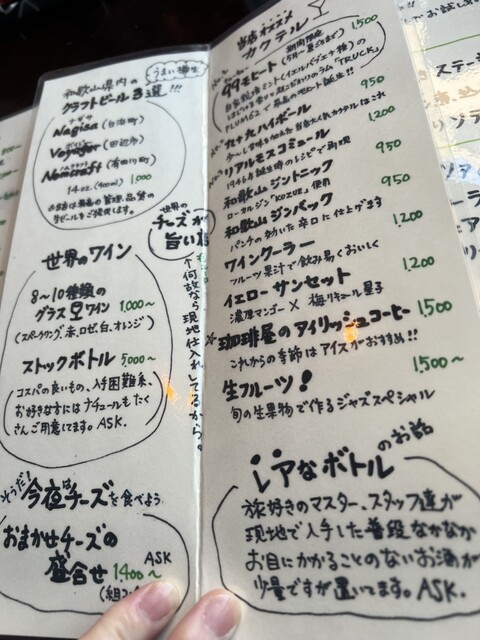 うまい樽生
和歌山県内の
クラフトビール3選!!!
ナギサ
Nagisa (白浜町)
ボイジャー
Voyager (田辺市)
Nomcraft (有田川町)
14oz. (400ml) 1,000
生ビールをご提供します。
世界の
チーズが
旨い店
↑何故なら現地仕入れしてるから。
世界のワイン
8〜10種類の
グラスワイン 1,000〜
(スパークリング、赤、ロゼ、白、オレンジ)
ストックボトル 5,000〜
コスパの良いもの、入手困難系、
お好きな方にはナチュールもたく
さんご用意してます。ASK.
そうだ!
今夜はチーズを食べよう
おまかせチーズの
盛合せ 1,400〜
ASK
当店オススメ
カクテル
期間限定
99モヒート 1,500
PLUM62で最高のモヒート誕生!!
九十九ハイボール 950
リアルモスコミュール 1,200
1946年誕生時のレシピで再現
和歌山ジントニック 950
ローカルジン「KOZUE」使用
和歌山ジンバック 950
パンチの効いた辛口に仕上げます
ワインクーラー 1,200
フルーツ果汁で飲み易くおいしく
イエローサンセット 1,200
濃厚マンゴー × 梅リキュール星子
珈琲屋のアイリッシュコーヒー 1,500
これからの季節はアイスがおすすめ!!
生フルーツ! 1,500〜
旬の生果物で作るジャズスペシャル
レアなボトルのお話
旅好きのマスター、スタッフ達が
現地で入手した普段なかなか
お目にかかることのないお酒が
少量ですが置いてます。ASK.